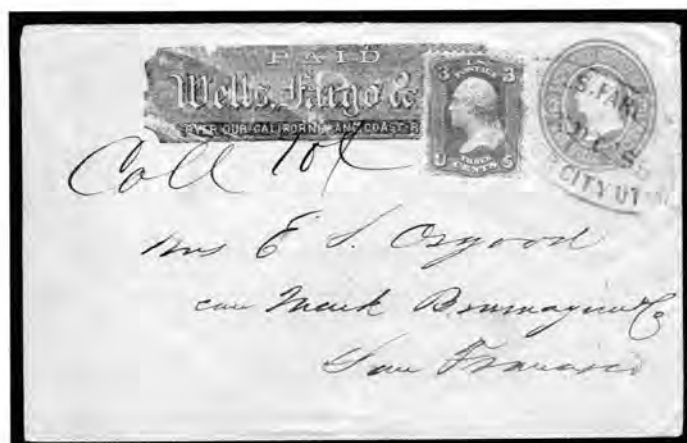 PAID
Wells, Fargo &
OVER OUR CALIFORNIA AND COAST R
3 U.S. POSTAGE 3
U THREE CENTS S
S. FARG
CITY UTAH
Coll 10¢
Mrs E S. Osgood
care Mark Brumagim & Co
San Francisco